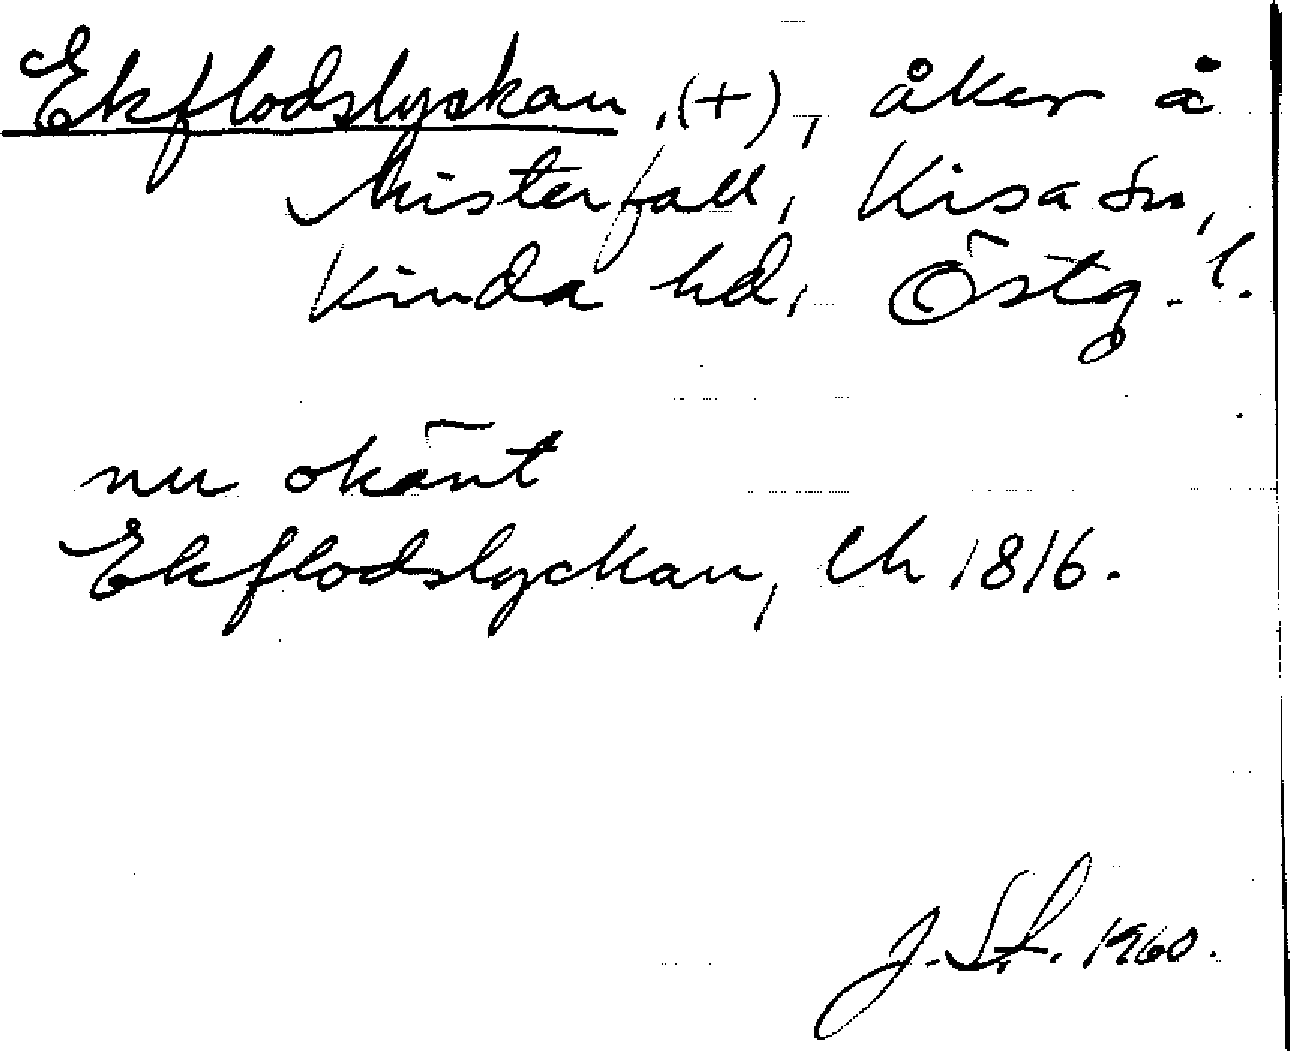 Ekflodslyckan, (+), åker å
Misterfall, Kisa sn,
Kinda hd, Östg. l.
nu okänt
Ekflodslyckan, Lh 1816.
J. S. L. 1960.